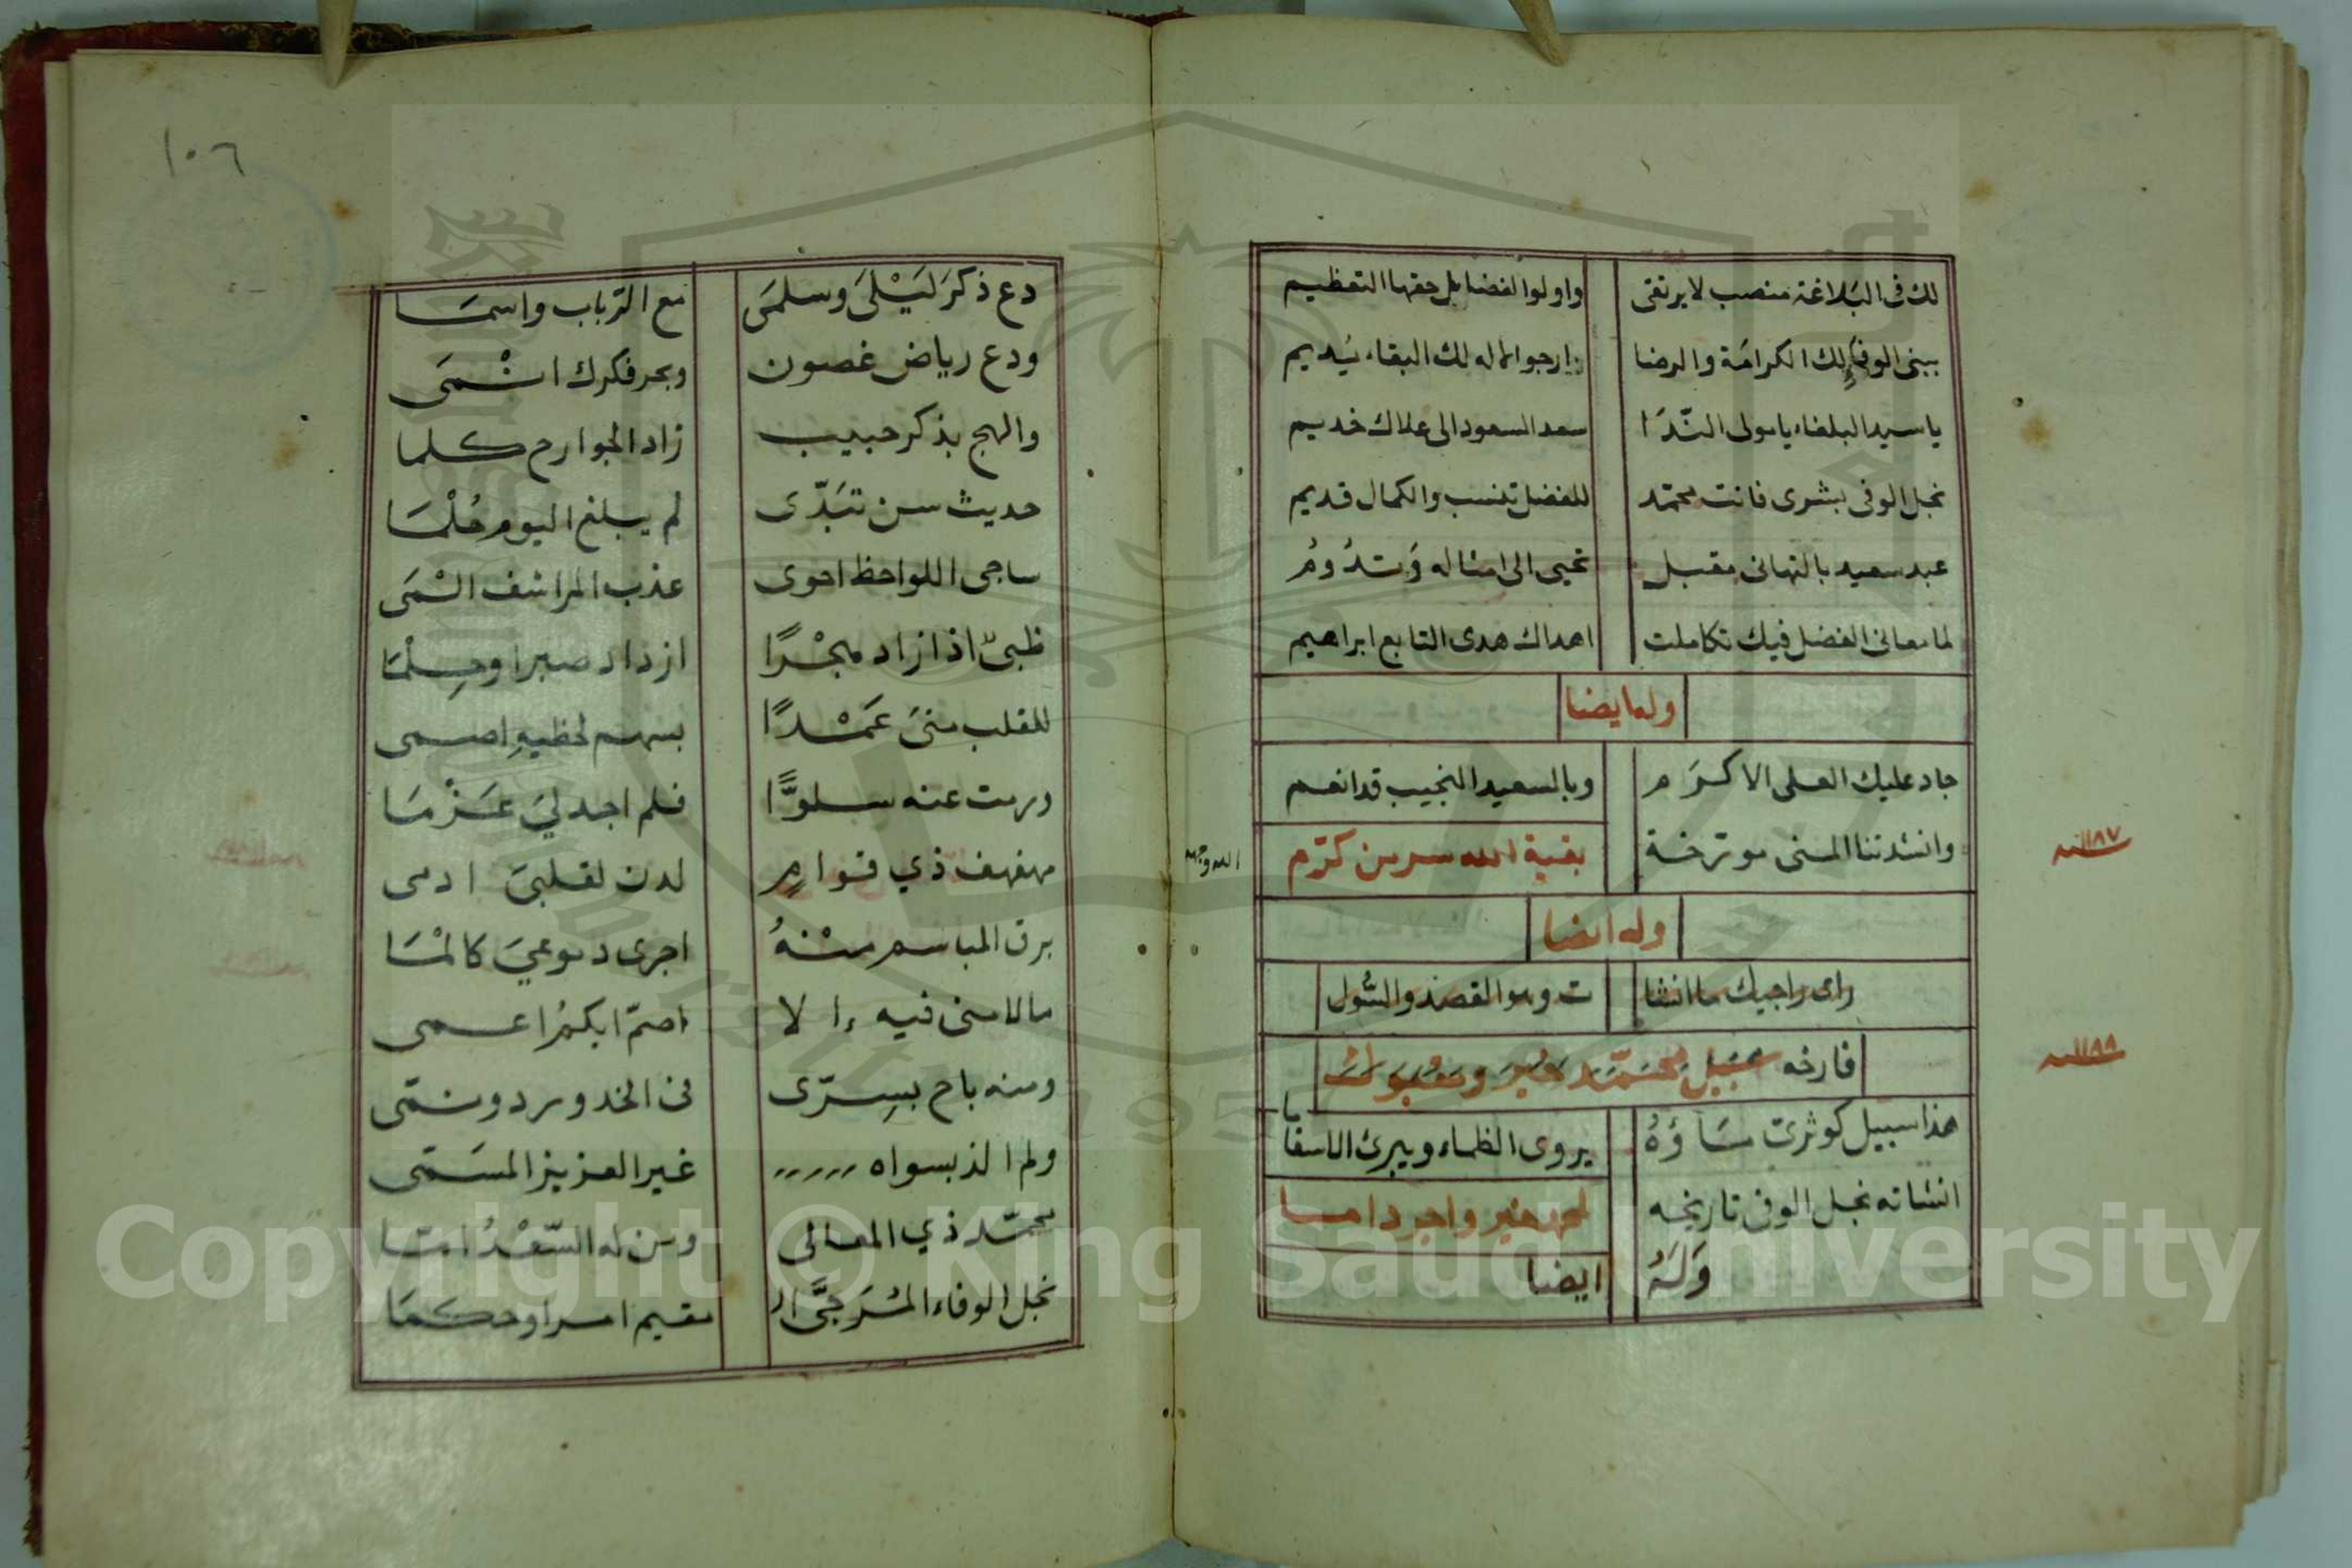 لك فى البلاغة منصب لا يرتقى واولوا الفضايل حقها التعظيم
ببنى الوفا لك الكرامة والرضا ارجوا الاله لك البقاء يُديم
يا سيد البلغاء يا مولى النّدَا سعد السعود الى علاك خديم
نجل الوفى بشرى فانت محمد للفضل تنسب والكمال قديم
عبد سعيد بالتهانى مقبل تحيى الى امثاله وَتدُومُ
لما معانى الفضل فيك تكاملت اهداك هدى التابع ابراهيم
وله ايضا
جاد عليك العلى الاكرَم وبالسعيد النجيب قد انعم
وانشدتنا المنى مورخة بقية الله سر من كرّم
١١٨٧ سنه
وله ايضا
راى راجيك ما انشا ت وهو القصد والسُّول
فارخه سَبيل مُحَمَّد خَيرَ ومَقبُول
١١٨٨ سنه
هذا سبيل كوثرىّ مَاؤهُ يروى الظماء ويبرئ الاسقاما
انشاته نجل الوفى تاريخه لمحمد خير واجر داما
وَلَهُ ايضا
١٠٦
دع ذكرَ لَيْلَىَ وسلمَى مع الرّباب واسمَا
ودع رياض غصون وبحر فكرك اسْمَى
والهج بذكر حبيب زاد الجوارح كلما
حديث سن تبَدّى لم يبلغ اليوم حُلْمَا
ساجى اللواحظ احوى عذب المراشف المَى
ظبىٌ اذا زاد هجْرًا ازداد صبرا وحِلْمَا
للقلب منىَ عَمْدًا بسهم لحظيهِ اصمى
ورمت عنه سلوًّا فلم اجد لىَ عَزْمَا
مهفهف ذي قوامٍ لدن لقلبىَ ادمى
برق المباسم منْهُ اجرى دموعىَ كالمْا
ما لامنى فيه الا اصمّ ابكمُ اعمى
ومنه باح بسِرّى فى الخد ورد ونمّى
ولم الذ بسواه غير العزيز المسَمّى
محمّد ذي المعالى ومن له السّعْدُ امّا
نجل الوفاء المُرَجَّى ال مقيم امرا وحكمَا
Copyright © King Saud University
1957